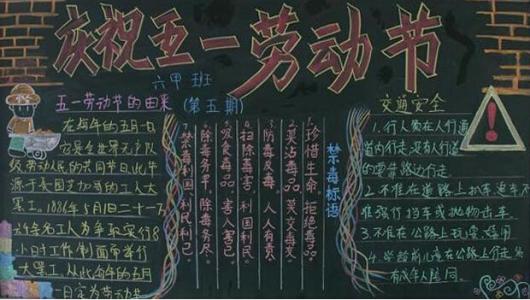 庆祝五一劳动节
六甲班
五一劳动节的由来
(第五期)
在每年的五月一日
它是全世界无产阶
级劳动人民的共同节日此节
源于美国芝加哥的工人大
罢工。1886年5月1日二十一万
六千名工人为争取实行8
小时工作制而举行
大罢工从此每年的五月
一日定为劳动节
禁毒标语
珍惜生命,拒绝毒品。
莫沾毒品,莫交毒友。
防毒反毒,人人有责。
扫除毒害,利国利民。
吸食毒品,害人害己。
除毒务早,除毒务尽。
禁毒利国利民利己。
交通安全
1.行人须在人行道
内行走,没有人行道
的靠路边行走。
2.不准在道路上扒车、追车
强行拦车或抛物击车。
3.不准在公路上玩耍、嬉闹
4.学龄前儿童在公路上行走
有成年人陪同